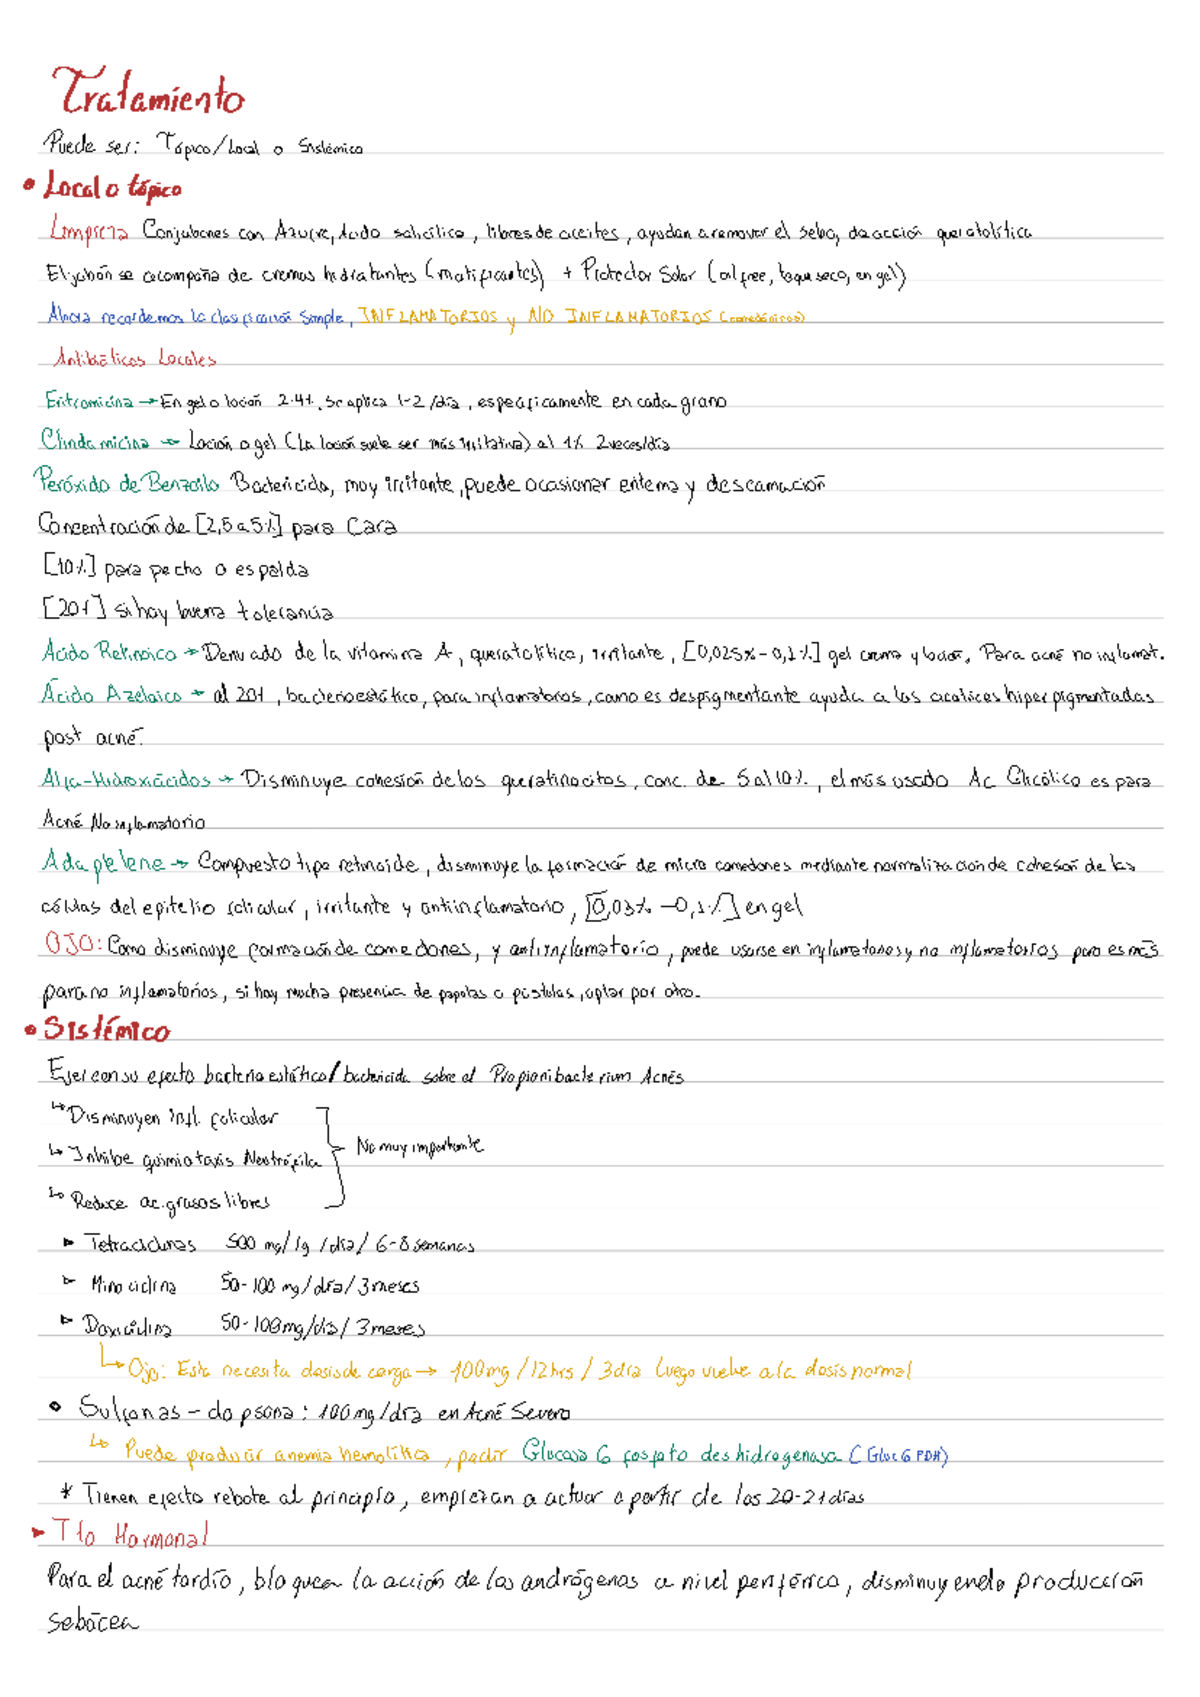 Tratamiento
Puede ser: Tópico/Local o Sistémico
• Local o tópico
Limpieza Con jabones con Azufre, Ácido salicílico, libres de aceites, ayudan a remover el sebo, de acción queratolítica
El jabón se acompaña de cremas hidratantes (matificantes) + Protector Solar (oil free, toque seco, en gel)
Ahora recordemos la clasificación simple, INFLAMATORIOS y NO INFLAMATORIOS (comedónicos)
Antibióticos Locales
Eritromicina → En gel o loción 2-4%, se aplica 1-2/día, específicamente en cada grano
Clindamicina → Loción o gel (La loción suele ser más irritativa) al 1% 2veces/día
Peróxido de Benzoilo Bactericida, muy irritante, puede ocasionar eritema y descamación
Concentración de [2,5 a 5%] para Cara
[10%] para pecho o espalda
[20%] si hay buena tolerancia
Ácido Retinoico → Derivado de la vitamina A, queratolítico, irritante, [0,025%-0,1%] gel crema y loción, Para acné no inflamat.
Ácido Azelaico → al 20%, bacterioestático, para inflamatorios, como es despigmentante ayuda a las cicatrices hiperpigmentadas
post acné.
Alfa-Hidroxiácidos → Disminuye cohesión de los queratinocitos, conc. de 5 al 10%, el más usado Ac Glicólico es para
Acné No inflamatorio
Adaptelene → Compuesto tipo retinoide, disminuye la formación de micro comedones mediante normalización de cohesión de las
células del epitelio folicular, irritante y antiinflamatorio, [0,03% -0,1%] en gel
OJO: Como disminuye formación de comedones, y antiinflamatorio, puede usarse en inflamatorios y no inflamatorios pero es más
para no inflamatorios, si hay mucha presencia de papulas o pústulas, optar por otro.
• Sistémico
Ejercen su efecto bacterioestático/bactericida sobre el Propionibacterium Acnés
↳ Disminuyen infl. folicular
↳ Inhibe quimiotaxis Neutrófila } No muy importante
↳ Reduce ac. grasos libres
▸ Tetraciclinas 500 mg/1g /día/ 6-8 semanas
▸ Minociclina 50-100 mg/día/3 meses
▸ Doxiciclina 50-100mg/día/ 3 meses
↳ Ojo: Esta necesita dosis de carga → 100mg/12hrs/3día Luego vuelve a la dosis normal
• Sulfonas - dopsona: 100mg/día en Acné Severo
↳ Puede producir anemia hemolítica, pedir Glucosa 6 fosfato deshidrogenasa (Gluc 6 PDH)
* Tienen efecto rebote al principio, empiezan a actuar a partir de los 20-21 días
▸ Tto Hormonal
Para el acné tardío, bloquea la acción de los andrógenos a nivel periférico, disminuyendo producción
sebácea